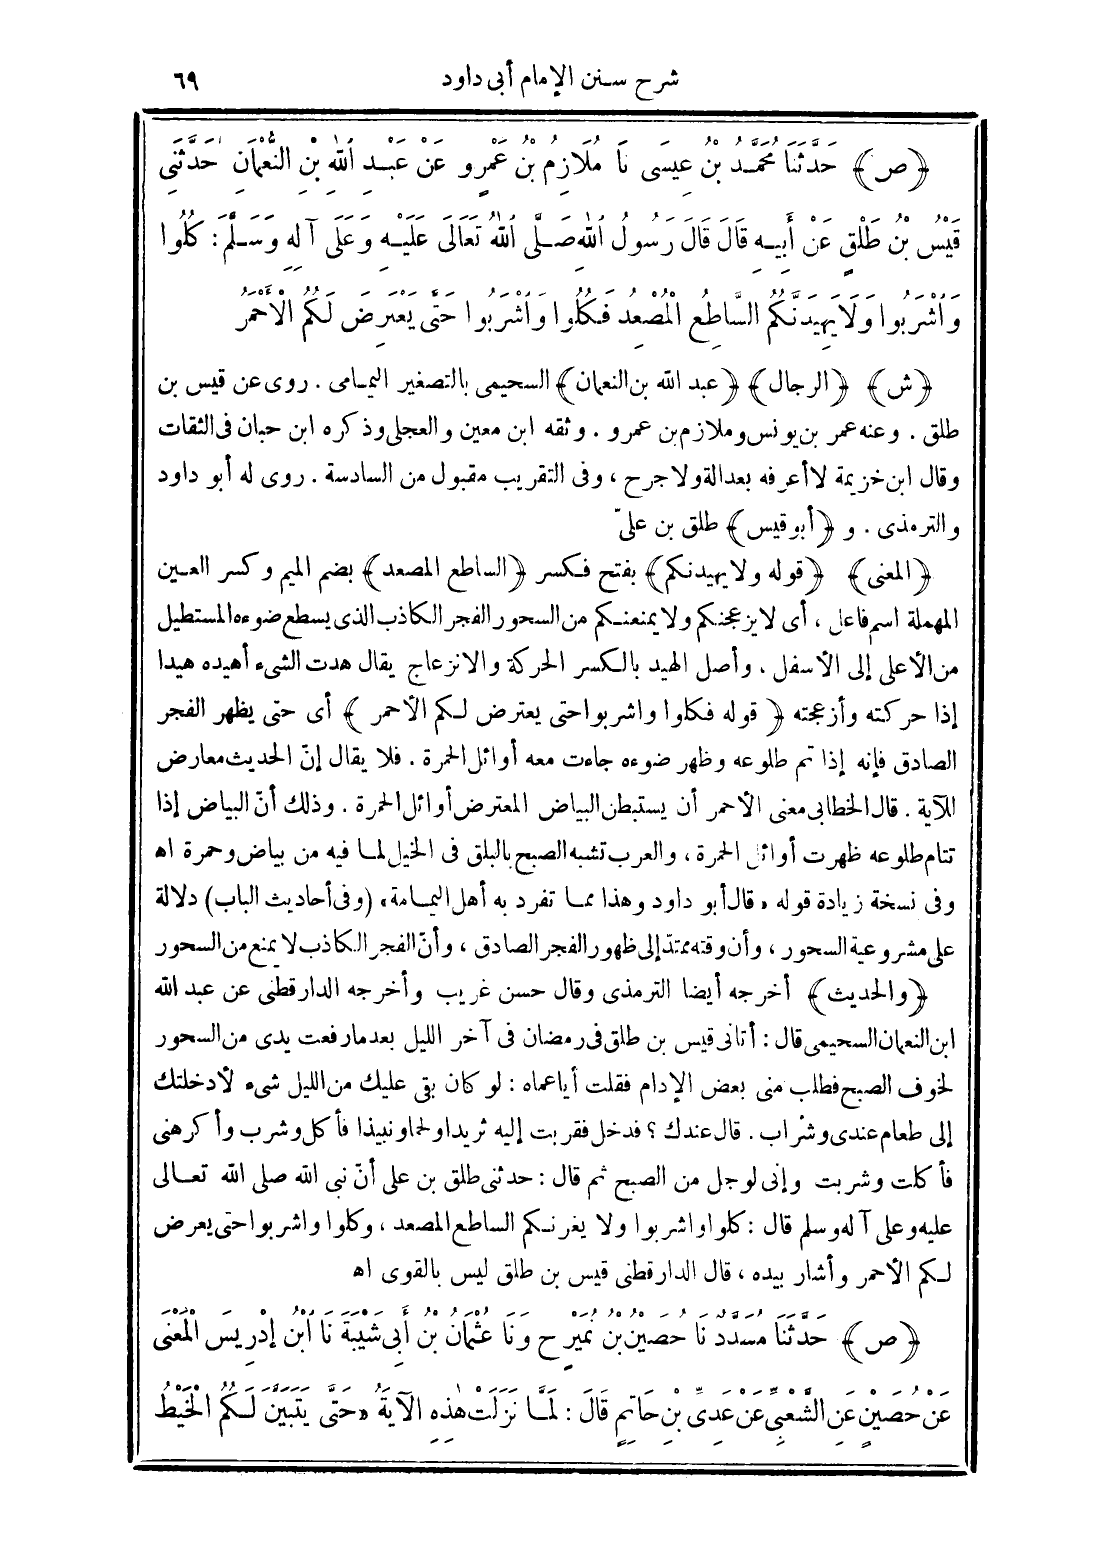 شرح سنن الإمام أبى داود ٦٩
﴿ص﴾ حَدَّثَنَا مُحَمَّدُ بْنُ عِيسَى نَا مُلَازِمُ بْنُ عَمْرٍو عَنْ عَبْدِ اللهِ بْنِ النُّعْمَانِ حَدَّثَنِى
قَيْسُ بْنُ طَلْقٍ عَنْ أَبِيهِ قَالَ قَالَ رَسُولُ اللهِ صَلَّى اللهُ تَعَالَى عَلَيْهِ وَعَلَى آلِهِ وَسَلَّمَ: كُلُوا
وَاشْرَبُوا وَلَا يَهِيدَنَّكُمُ السَّاطِعُ الْمُصْعِدُ فَكُلُوا وَاشْرَبُوا حَتَّى يَعْتَرِضَ لَكُمُ الْأَحْمَرُ
﴿ش﴾ ﴿الرجال﴾ ﴿عبد الله بن النعمان﴾ السحيمى بالتصغير اليمامى . روى عن قيس بن
طلق . وعنه عمر بن يونس وملازم بن عمرو . وثقه ابن معين والعجلى وذكره ابن حبان فى الثقات
وقال ابن خزيمة لا أعرفه بعدالة ولا جرح ، وفى التقريب مقبول من السادسة . روى له أبو داود
والترمذى . و ﴿أبو قيس﴾ طلق بن علىّ
﴿المعنى﴾ ﴿قوله ولا يهيدنكم﴾ بفتح فكسر ﴿الساطع المصعد﴾ بضم الميم وكسر العين
المهملة اسم فاعل ، أى لا يزعجنكم ولا يمنعنكم من السحور الفجر الكاذب الذى يسطع ضوءه المستطيل
من الأعلى إلى الأسفل . وأصل الهيد بالكسر الحركة والانزعاج يقال هدت الشىء أهيده هيدا
إذا حركته وأزعجته ﴿ قوله فكلوا واشربوا حتى يعترض لكم الأحمر ﴾ أى حتى يظهر الفجر
الصادق فإنه إذا تم طلوعه وظهر ضوءه جاءت معه أوائل الحمرة . فلا يقال إنّ الحديث معارض
للآية . قال الخطابى معنى الأحمر أن يستبطن البياض المعترض أوائل الحمرة . وذلك أنّ البياض إذا
تتام طلوعه ظهرت أوائل الحمرة ، والعرب تشبه الصبح بالبلق فى الخيل لما فيه من بياض وحمرة اه
وفى نسخة زيادة قوله «قال أبو داود وهذا مما تفرد به أهل اليمامة» (وفى أحاديث الباب) دلالة
على مشروعية السحور ، وأن وقته ممتدّ إلى ظهور الفجر الصادق ، وأنّ الفجر الكاذب لا يمنع من السحور
﴿والحديث﴾ أخرجه أيضا الترمذى وقال حسن غريب وأخرجه الدارقطنى عن عبد الله
ابن النعمان السحيمى قال : أتانى قيس بن طلق فى رمضان فى آخر الليل بعد ما رفعت يدى من السحور
لخوف الصبح فطلب منى بعض الإدام فقلت أيا عماه : لو كان بقى عليك من الليل شىء لأدخلتك
إلى طعام عندى وشراب . قال عندك ؟ فدخل فقربت إليه ثريدا ولحما ونبيذا فأكل وشرب وأكرهنى
فأكلت وشربت وإنى لوجل من الصبح ثم قال : حدثنى طلق بن على أنّ نبى الله صلى الله تعالى
عليه وعلى آله وسلم قال : كلوا واشربوا ولا يغرنكم الساطع المصعد ، وكلوا واشربوا حتى يعرض
لكم الأحمر وأشار بيده ، قال الدارقطنى قيس بن طلق ليس بالقوى اه
﴿ص﴾ حَدَّثَنَا مُسَدَّدٌ نَا حُصَيْنُ بْنُ نُمَيْرٍ ح وَنَا عُثْمَانُ بْنُ أَبِى شَيْبَةَ نَا ابْنُ إِدْرِيسَ الْمَعْنَى
عَنْ حُصَيْنٍ عَنِ الشَّعْبِىِّ عَنْ عَدِىِّ بْنِ حَاتِمٍ قَالَ : لَمَّا نَزَلَتْ هٰذِهِ الْآيَةُ «حَتَّى يَتَبَيَّنَ لَكُمُ الْخَيْطُ